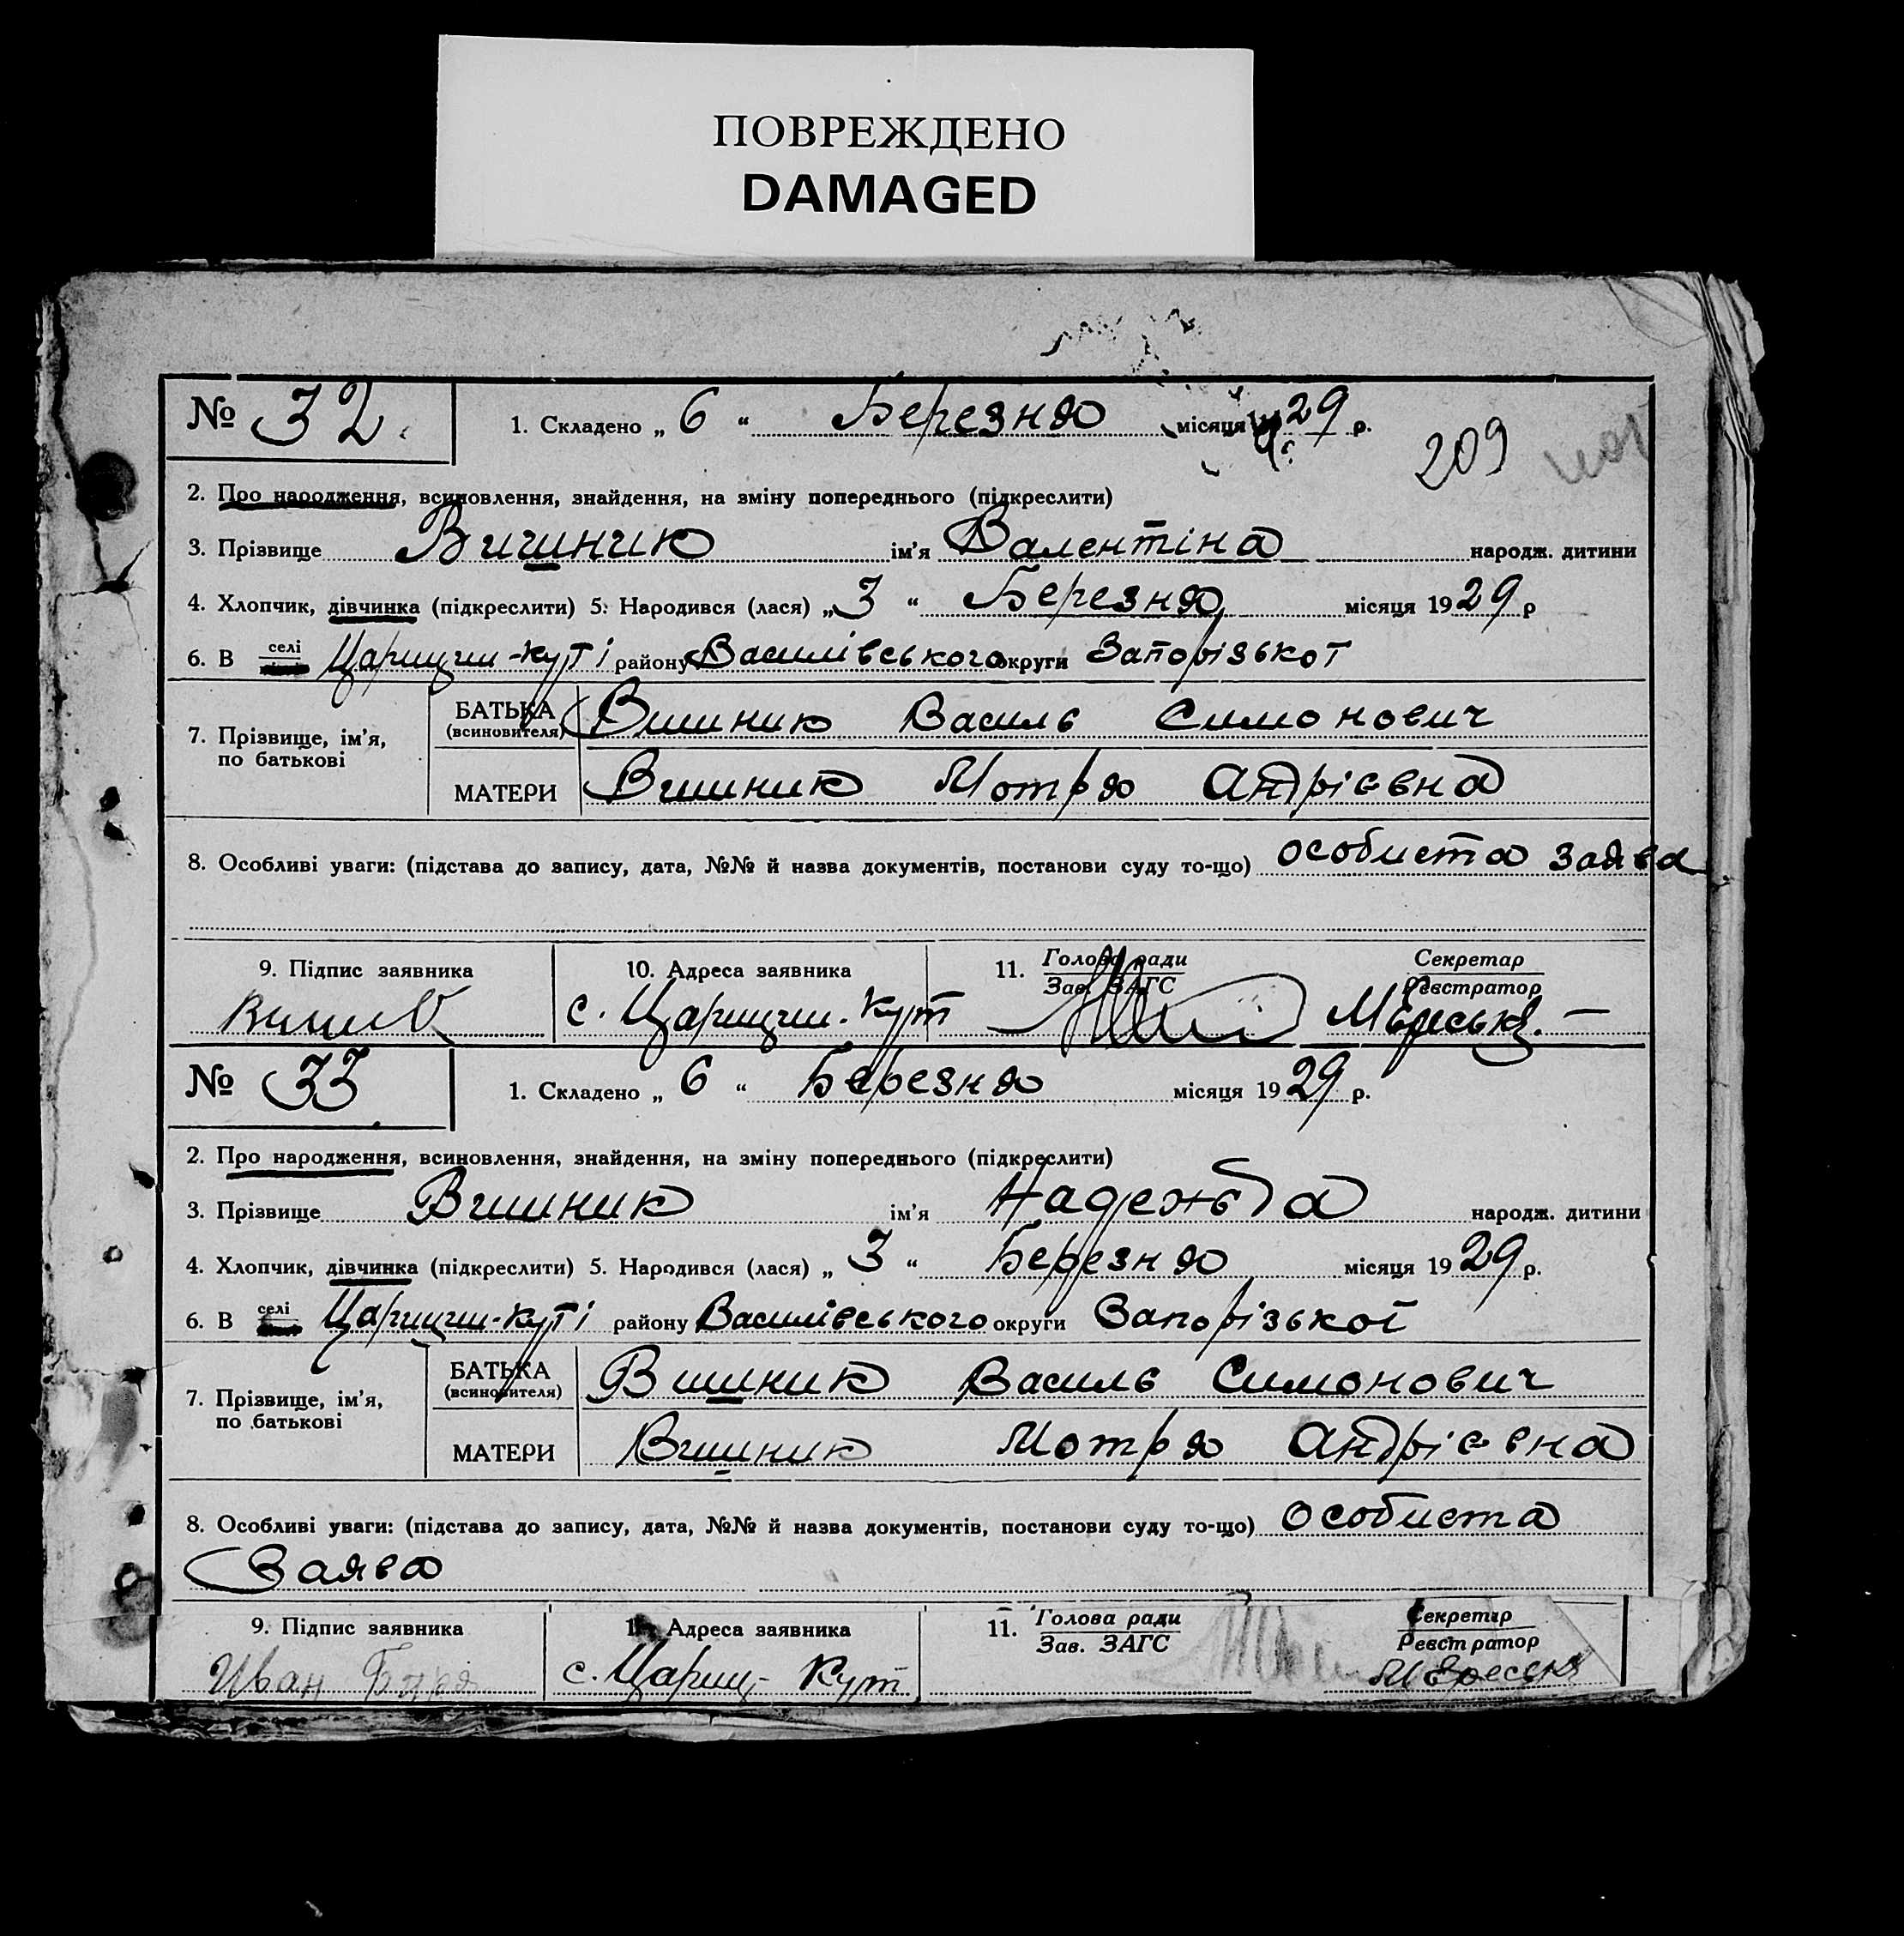 ПОВРЕЖДЕНО
DAMAGED
№ 32. 1. Складено „ 6 “ Березня місяця 1929 р.
209
2. Про народження, всиновлення, знайдення, на зміну попереднього (підкреслити)
3. Прізвище Вишник ім'я Валентіна народж. дитини
4. Хлопчик, дівчинка (підкреслити) 5. Народився (лася) „ 3 “ Березня місяця 1929 р
6. В селі Царицин-Куті району Василівського округи Запорізької
7. Прізвище, ім'я, по батькові
БАТЬКА (всиновителя) Вишник Василь Симонович
МАТЕРИ Вишник Мотря Андрієвна
8. Особливі уваги: (підстава до запису, дата, №№ й назва документів, постанови суду то-що) особиста заява
9. Підпис заявника 10. Адреса заявника 11. Голова ради Зав. ЗАГС Секретар Реєстратор
с. Царицин-Кут
№ 33 1. Складено „ 6 “ Березня місяця 1929 р.
2. Про народження, всиновлення, знайдення, на зміну попереднього (підкреслити)
3. Прізвище Вишник ім'я Надежда народж. дитини
4. Хлопчик, дівчинка (підкреслити) 5. Народився (лася) „ 3 “ Березня місяця 1929 р.
6. В селі Царицин-Куті району Василівського округи Запорізької
7. Прізвище, ім'я, по батькові
БАТЬКА (всиновителя) Вишник Василь Симонович
МАТЕРИ Вишник Мотря Андрієвна
8. Особливі уваги: (підстава до запису, дата, №№ й назва документів, постанови суду то-що) особиста
Заява
9. Підпис заявника 10. Адреса заявника 11. Голова ради Зав. ЗАГС Секретар Реєстратор
Иван с. Цариц-Кут